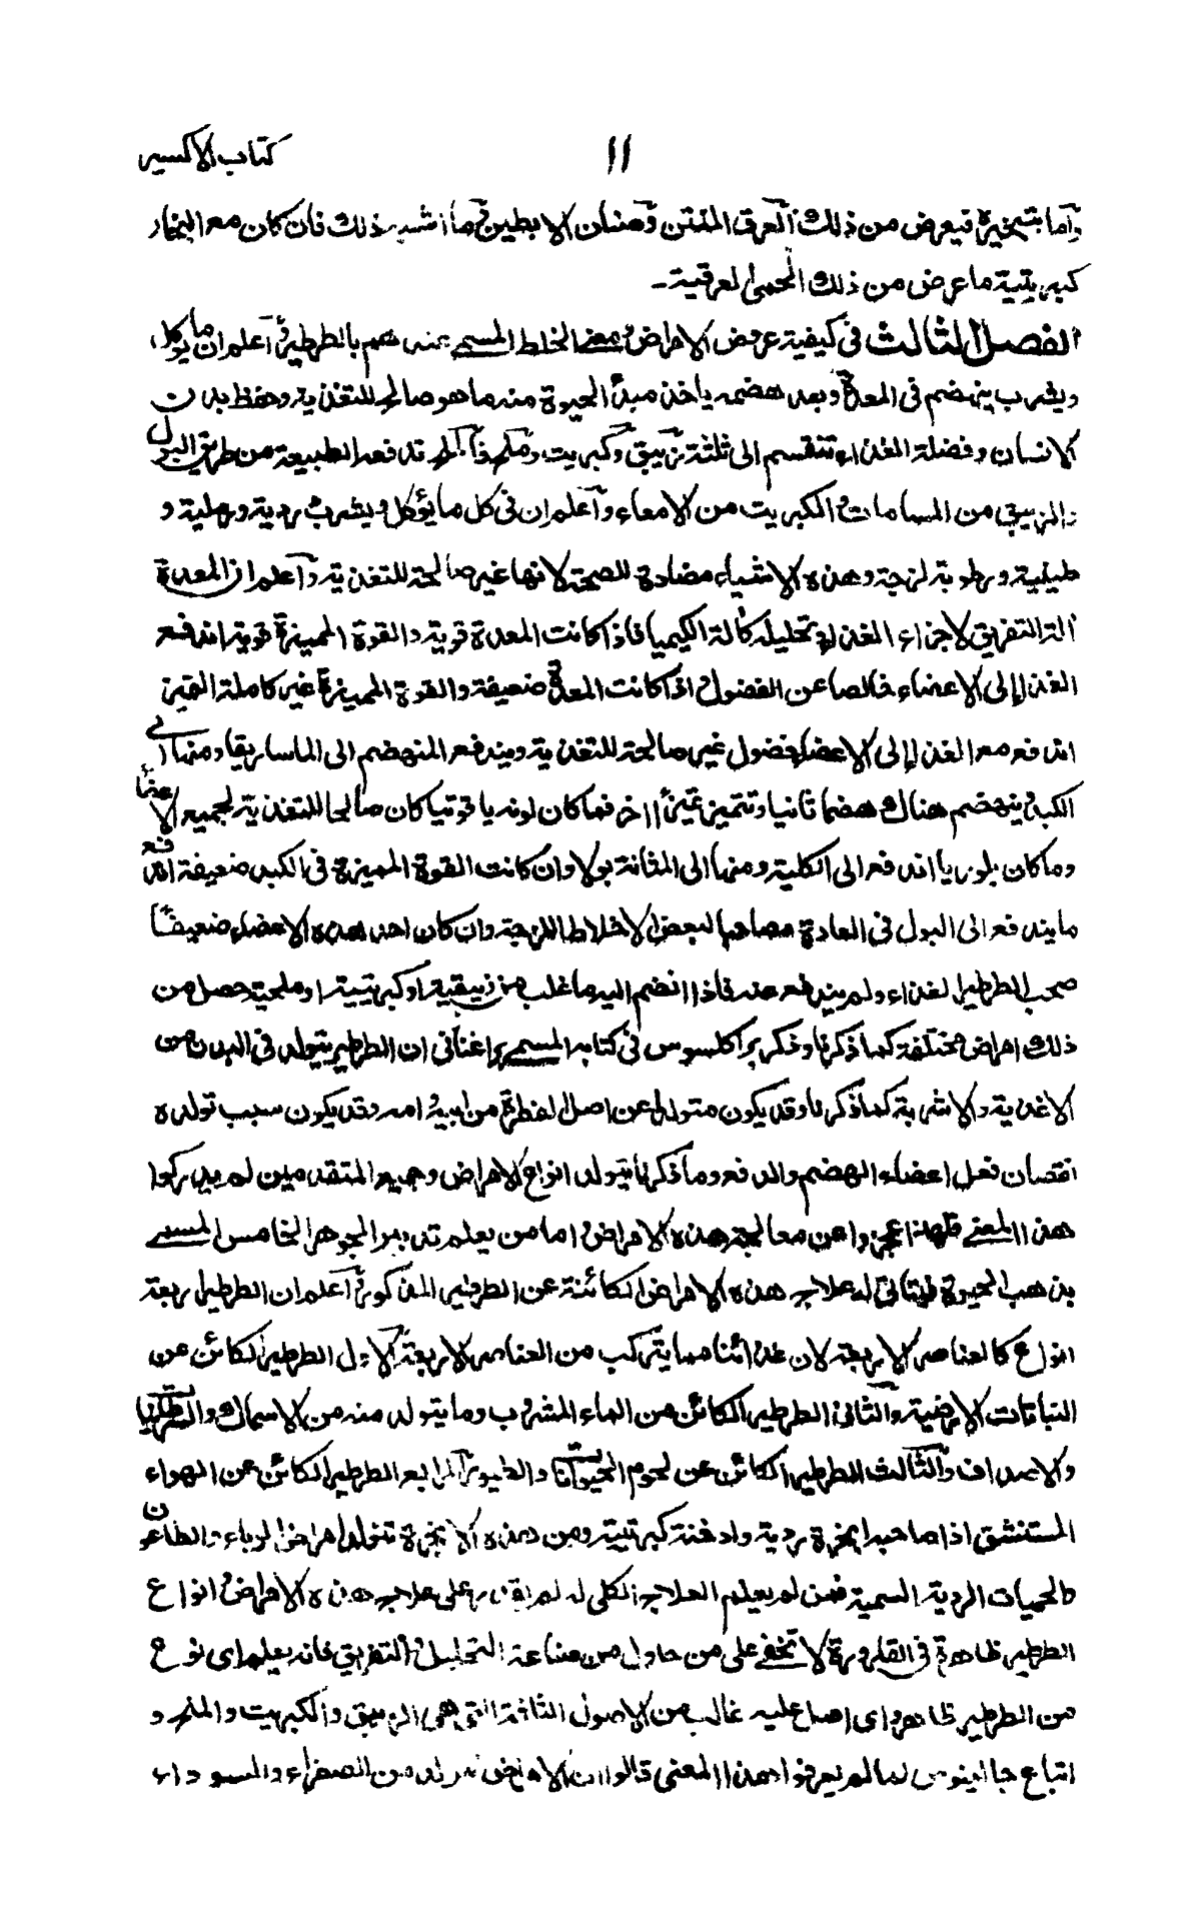 كتاب الاكسير
١١
وآما بتبخيره فيعرض من ذلك العرق المنتن وصنان الابطين وما اشبه ذلك فان كان مع البخار
كبريتية ما عرض من ذلك الحمى العرقية۔
الفصل الثالث فى كيفية عروض الامراض عن الخلط المسمى عندهم بالطرطير آعلم ان ما يوكل
ويشرب ينهضم فى المعدة وبعد هضمه ياخذ مبدأ الحيوة منه ما هو صالح للتغذية وحفظ بدن
الانسان وفضلة الغذاء تنقسم الى ثلثة زيبق وكبريت وملح فالملح تدفعه الطبيعة من طريق البول
والزيبق من المسامات والكبريت من الامعاء وآعلم ان فى كل ما يؤكل ويشرب ردية ورملية و
طينية ورطوبة لزجة وهذه الاشياء مضادة للصحة لانها غير صالحة للتغذية وآعلم ان المعدة
آلة التفريق لاجزاء الغذاء وتحليله كآلة الكيميا فاذا كانت المعدة قوية والقوة المميزة قوية اندفع
الغذاء الى الاعضاء خالصا عن الفضول واذا كانت المعدة ضعيفة والقوة المميزة غير كاملة التميز
اندفع مع الغذاء الى الاعضاء فضول غير صالحة للتغذية ويندفع المنهضم الى الماساريقا ومنها الى
الكبد وينهضم هناك هضما ثانيا وتتميز تميزاً اخر فما كان لونه ياقوتيا كان صالحا للتغذية لجميع الاعضأ
وما كان بلوريا اندفع الى الكلية ومنها الى المثانة بولا وان كانت القوة المميزة فى الكبد ضعيفة اندفع
ما يندفع الى البول فى العادة مصاحبا لبعض الاخلاط اللزجة وان كان احد هذه الاعضاء ضعيفاً
صحب الطرطير الغذاء ولم يندفع عنه فاذا انضم اليه ما غلب من زيبقية او كبريتية او ملحية حصل من
ذلك امراض مختلفة كما ذكرنا وذكر براكلسوس فى كتابه المسمى براغنانى ان الطرطير يتولد فى البدن من
الاغذية والاشربة كما ذكرنا وقد يكون متولدا عن اصل الفطرة من ابيه وامه وقد يكون سبب تولده
نقصان فعل اعضاء الهضم والدفع وما ذكرنا يتولد انواع الامراض وجميع المتقدمين لم يدركوا
هذا المعنى فلهذا عجزوا عن معالجة هذه الامراض واما من يعلم تدبير الجوهر الخامس المسمى
بذهب الحيوة فيتاتى له علاج هذه الامراض الكائنة عن الطرطير المذكور وآعلم ان الطرطير اربعة
انواع كالعناصر الاربعة لان غذائنا مما يتركب من العناصر الاربعة الاول الطرطير الكائن عن
النباتات الارضية والثانى الطرطير الكائن من الماء المشروب وما يتولد منه من الاسماك والسرطانات
والاصداف والثالث الطرطير الكائن عن لحوم الحيوانات والطيور والرابع الطرطير الكائن عن الهواء
المستنشق اذا صاحبه ابخرة ردية وادخنة كبريتية ومن هذه الابخرة تتولد امراض الوباء والطاعون
والحميات الردية السمية فمن لم يعلم العلاج الكلى له لم يقدر على علاج هذه الامراض وانواع
الطرطير ظاهرة فى القارورة لا تخفى على من حاول من صناعة التحليل والتفريق فانه يعلم اى نوع
من الطرطير ظاهر واى اصل عليه غالب من الاصول الثلثة التى هى الزيبق والكبريت والملح و
اتباع جالينوس لما لم يعرفوا هذا المعنى قالوا ان الامراض تتولد من الصفراء والسوداء